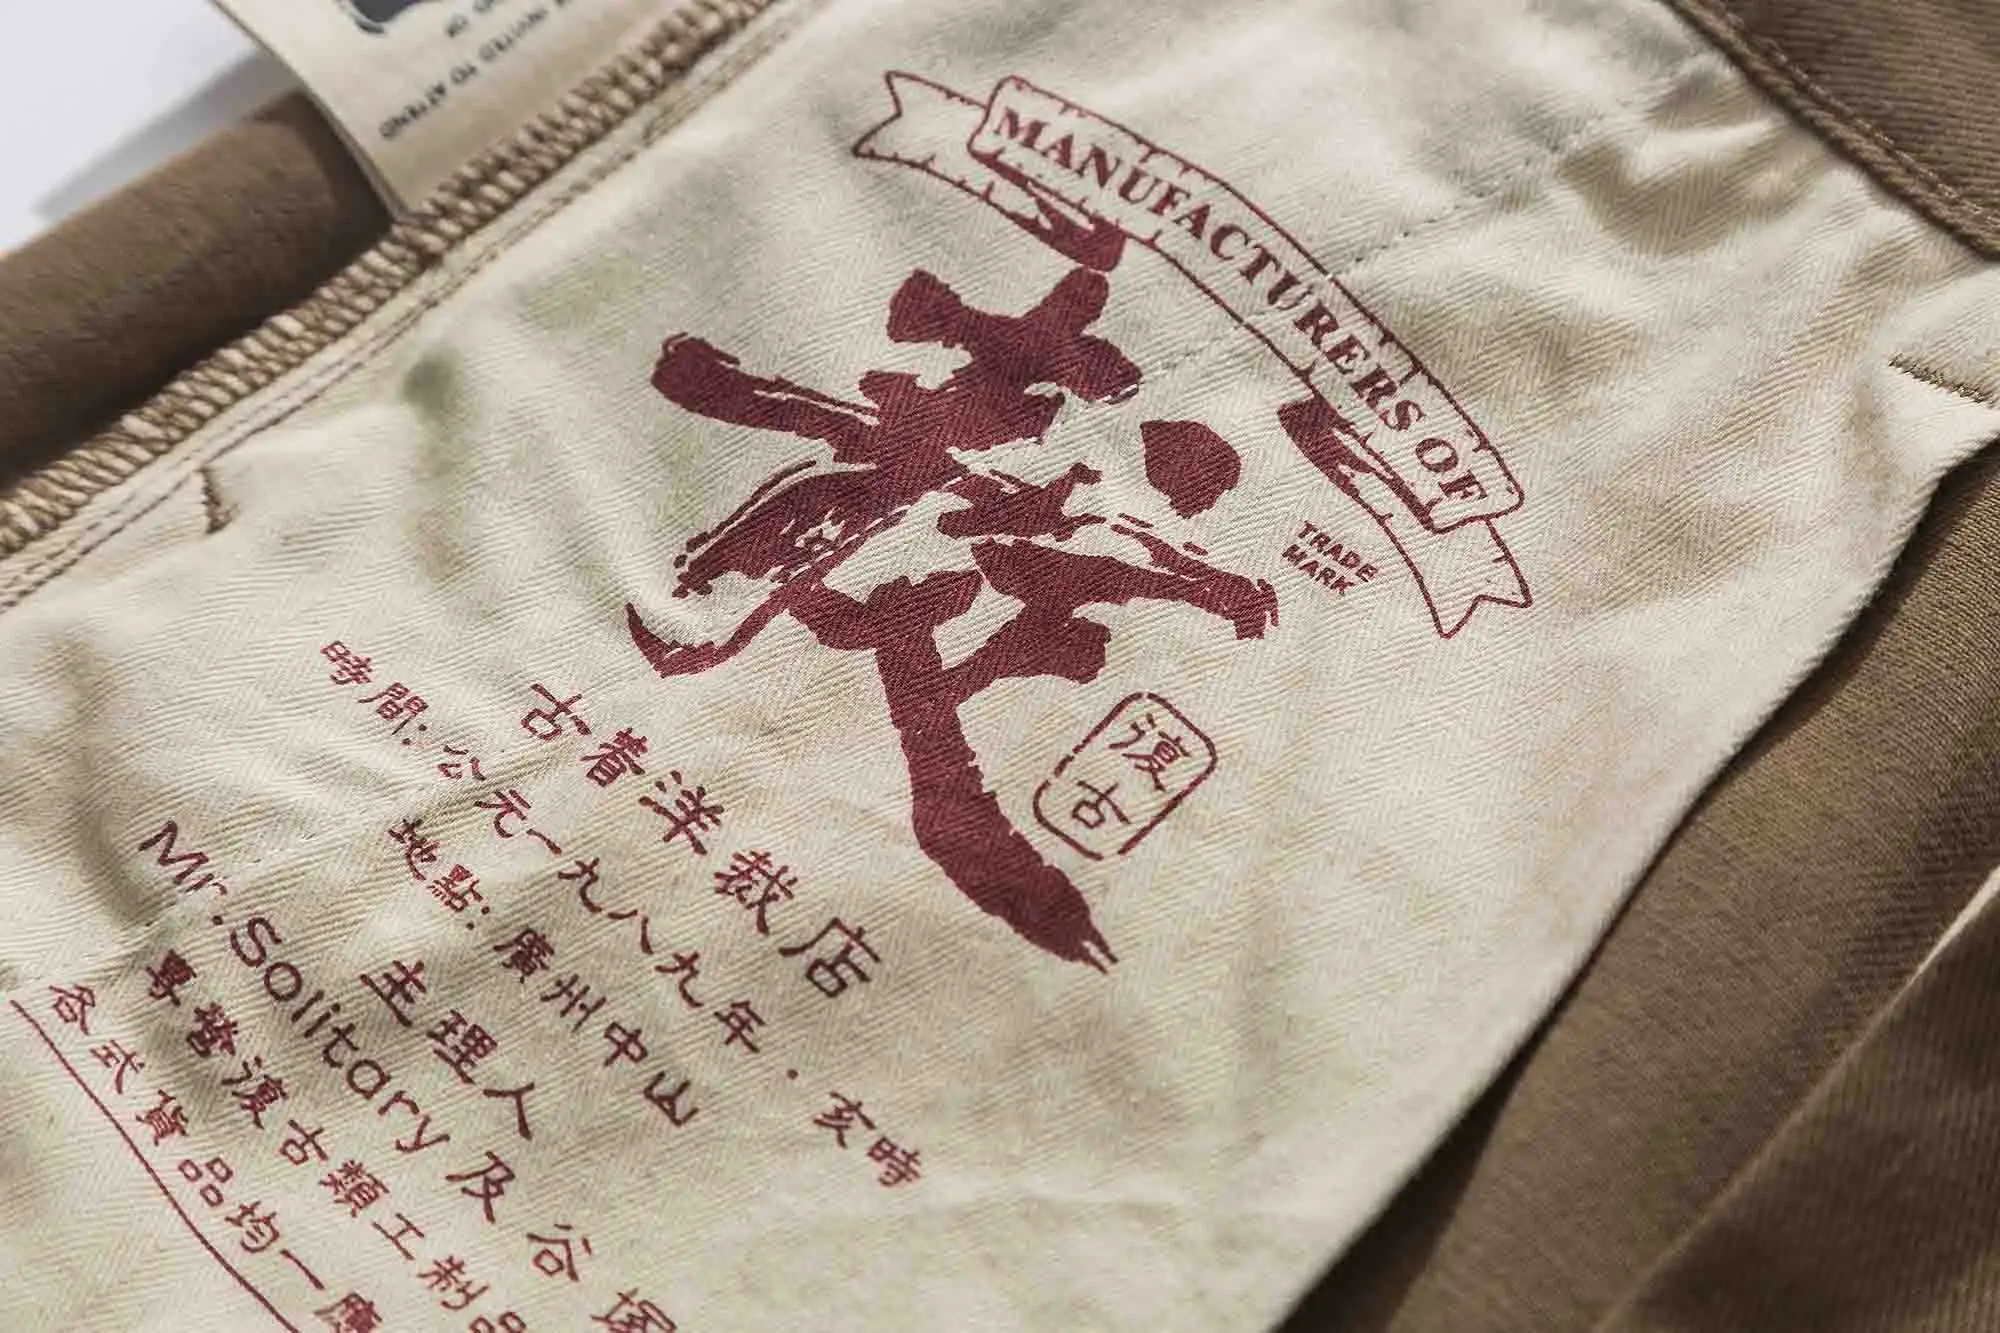 MANUFACTURERS OF
TRADE
MARK
復古
古着洋裁店
時間:公元一九八九年·亥時
地點:廣州中山
主理人
Mr.Solitary及谷塚
專營復古類工制品
各式貨品均一應